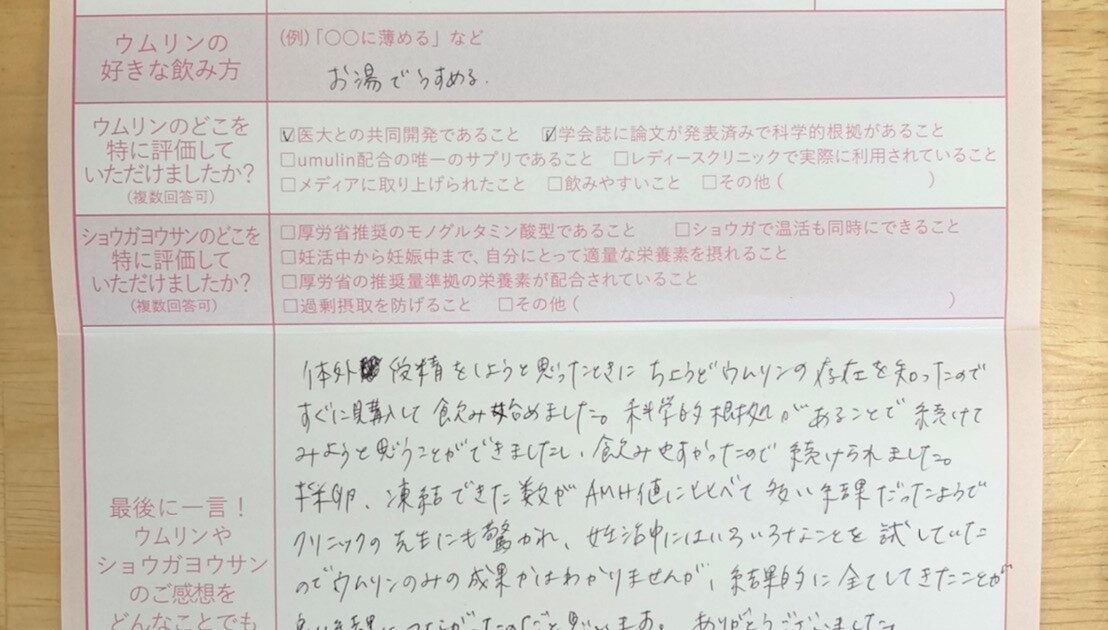 ウムリンの
好きな飲み方
(例)「〇〇に薄める」など
お湯でうすめる.
ウムリンのどこを
特に評価して
いただけましたか?
(複数回答可)
☑医大との共同開発であること ☑学会誌に論文が発表済みで科学的根拠があること
□umulin配合の唯一のサプリであること □レディースクリニックで実際に利用されていること
□メディアに取り上げられたこと □飲みやすいこと □その他( )
ショウガヨウサンのどこを
特に評価して
いただけましたか?
(複数回答可)
□厚労省推奨のモノグルタミン酸型であること □ショウガで温活も同時にできること
□妊活中から妊娠中まで、自分にとって適量な栄養素を摂れること
□厚労省の推奨量準拠の栄養素が配合されていること
□過剰摂取を防げること □その他( )
最後に一言!
ウムリンや
ショウガヨウサン
のご感想を
どんなことでも
体外受精をしようと思ったときにちょうどウムリンの存在を知ったので
すぐに購入して飲み始めました。科学的根拠があることで続けて
みようと思うことができましたし、飲みやすかったので続けられました。
採卵、凍結できた数がAMH値にくらべて多い結果だったようで
クリニックの先生にも驚かれ、妊活中にはいろいろなことを試していた
のでウムリンのみの成果かはわかりませんが、結果的に全てしてきたことが
良い結果につながったのだと思います。ありがとうございました。